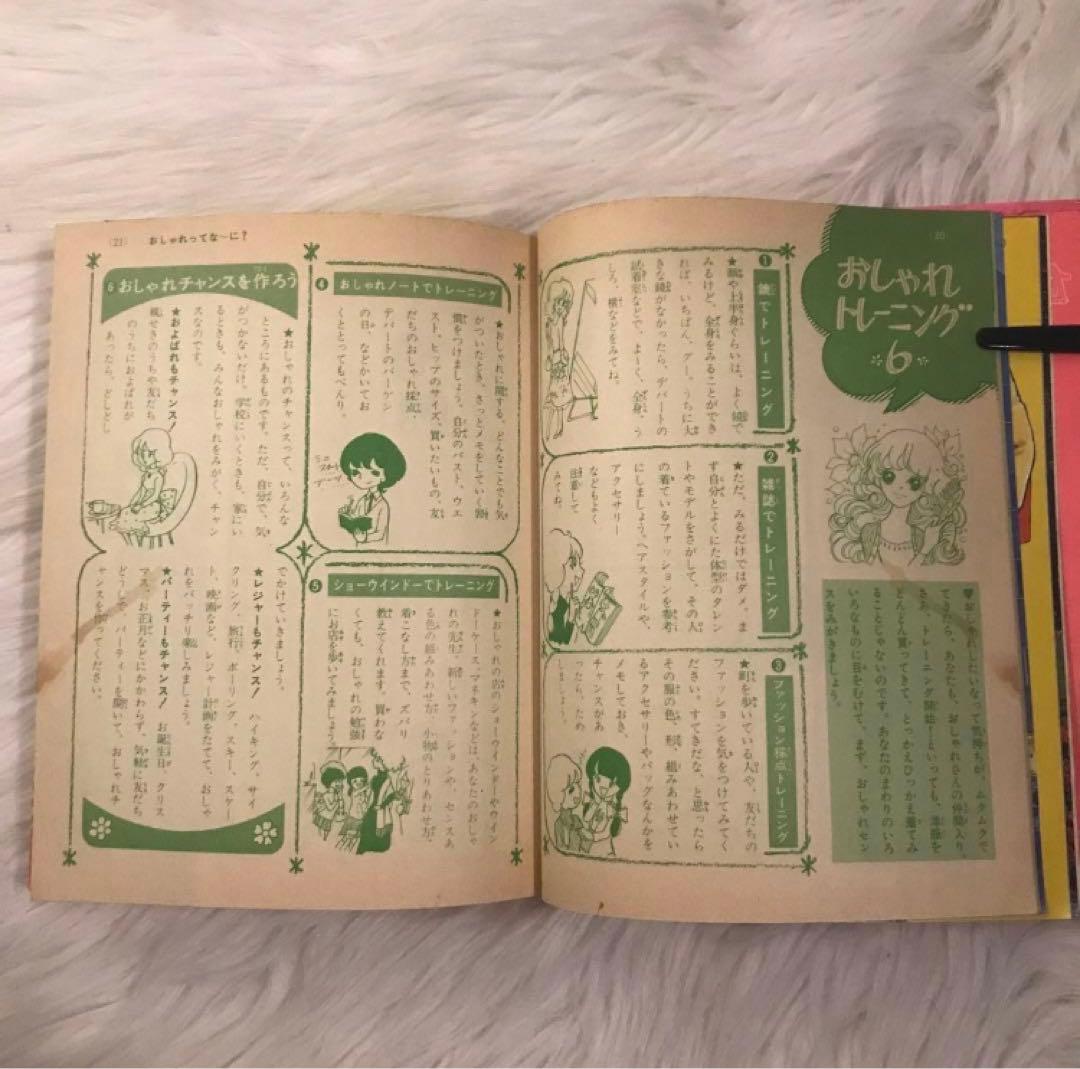 (20)
おしゃれ
トレーニング
6
♥おしゃれしたいなって気持ちが、ムクムクで
てきたら、あなたも、おしゃれさんの仲間入り。
さあ、トレーニング開始!! といっても、洋服を
どんどん買ってきて、とっかえひっかえ着てみ
ることじゃないのです。あなたのまわりのいろ
いろなものに目をむけて、まず、おしゃれセン
スをみがきましょう。
1 鏡でトレーニング
★顔や上半身ぐらいは、よく鏡で
みるけど、全身をみることができ
れば、いちばん、グー。うちに大
きな鏡がなかったら、デパートの
試着室などで、よーく、全身、う
しろ、横などをみてね。
2 雑誌でトレーニング
★ただ、みるだけではダメ。ま
ず自分とよくにた体型のタレン
トやモデルをさがして、その人
の着ているファッションを参考
にしましょう。ヘアスタイルや、
アクセサリー
などもよく
注意して
みてね。
3 ファッション採点トレーニング
★町を歩いている人や、友だちの
ファッションを気をつけてみてく
ださい。すてきだな、と思ったら
その服の色、形、組みあわせてい
るアクセサリーやバッグなんかを
メモしておき、
チャンスがあ
ったら、ため
しましょう。
(21) おしゃれってな〜に?
4 おしゃれノートでトレーニング
★おしゃれに関する、どんなことでも気
がついたとき、さっとメモをしていく習
慣をつけましょう。自分のバスト、ウエ
スト、ヒップのサイズ、買いたいもの、友
だちのおしゃれ採点、
デパートのバーゲン
の日、などかいてお
くととってもべんり。
ミニ
スカート
5 ショーウインドーでトレーニング
★おしゃれの店のショーウインドーやウイン
ドーケース、マネキンなどは、あなたのおしゃ
れの先生。新しいファッションや、センスあ
る色の組みあわせ方、小物のとりあわせ方、
着こなし方まで、ズバリ
教えてくれます。買わな
くても、おしゃれの勉強
にお店を歩いてみましょう。
6 おしゃれチャンスを作ろう
★おしゃれのチャンスって、いろんな
ところにあるものです。ただ、自分で、気
がつかないだけ。学校にいくときも、家にい
るときも、みんなおしゃれをみがく、チャン
スなのです。
★およばれもチャンス!
親せきのうちや友だち
のうちにおよばれが
あったら、どしどし
でかけていきましょう。
★レジャーもチャンス! ハイキング、サイ
クリング、旅行、ボーリング、スキー、スケー
ト、映画など、レジャー計画をたてて、おしゃ
れをバッチリ楽しみましょう。
★パーティーもチャンス! お誕生日、クリス
マス、お正月などにかかわらず、気軽に友だち
どうしで、パーティーを開いて、おしゃれチ
ャンスを作ってください。